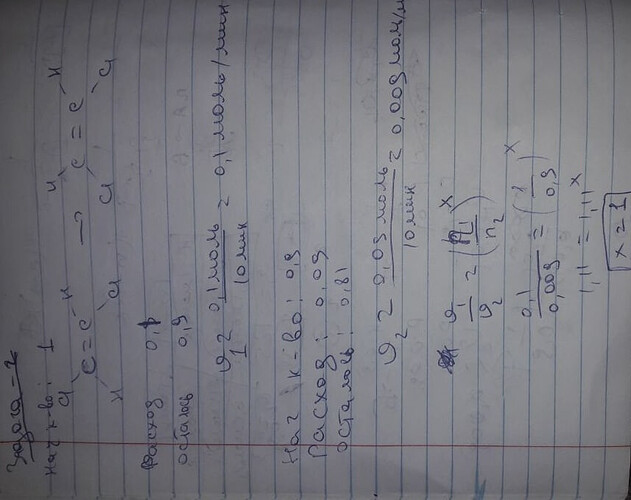 Задача-2
Нач к-во: 1
Cl H H H
C=C → C=C
H Cl Cl Cl
Расход 0,1
осталось 0,9
υ1 = 0,1 моль / 10 мин = 0,1 моль/мин
Нач к-во: 0,9
Расход: 0,09
осталось: 0,81
υ2 = 0,09 моль / 10 мин = 0,009 моль/м
υ1 / υ2 = (n1 / n2)^x
0,1 / 0,009 = (1 / 0,9)^x
1,11 = 1,11^x
x = 1